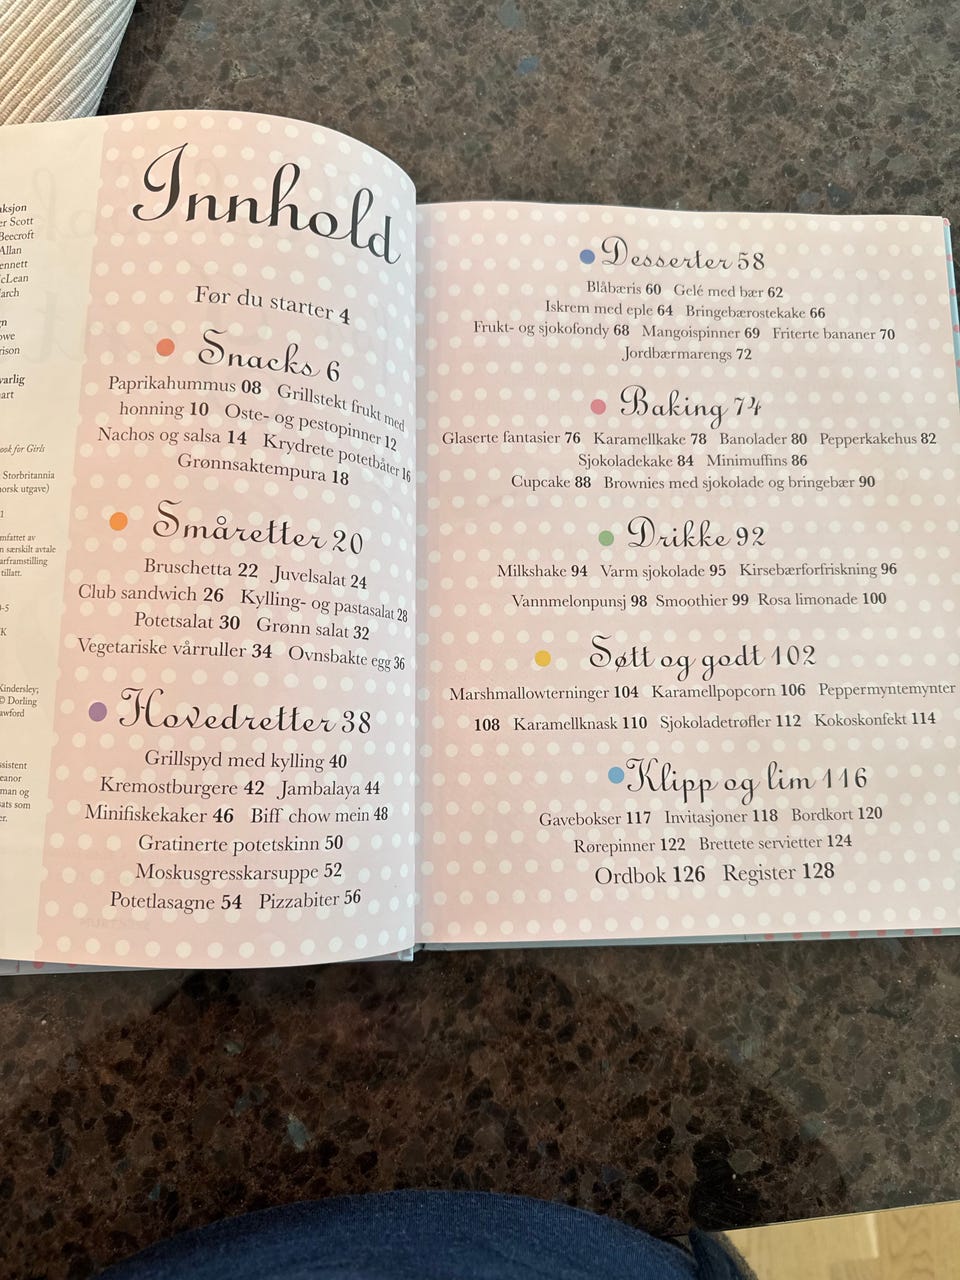 aksjon
er Scott
Beecroft
Allan
ennett
cLean
arch
n
owe
rison
varlig
art
ook for Girls
Storbritannia
norsk utgave)
1
mfattet av
n særskilt avtale
arframstilling
tillatt.
-5
K
Kindersley;
© Dorling
awford
ssistent
eanor
man og
sats som
er.
Innhold
Før du starter 4
Snacks 6
Paprikahummus 08 Grillstekt frukt med
honning 10 Oste- og pestopinner 12
Nachos og salsa 14 Krydrete potetbåter 16
Grønnsaktempura 18
Småretter 20
Bruschetta 22 Juvelsalat 24
Club sandwich 26 Kylling- og pastasalat 28
Potetsalat 30 Grønn salat 32
Vegetariske vårruller 34 Ovnsbakte egg 36
Hovedretter 38
Grillspyd med kylling 40
Kremostburgere 42 Jambalaya 44
Minifiskekaker 46 Biff chow mein 48
Gratinerte potetskinn 50
Moskusgresskarsuppe 52
Potetlasagne 54 Pizzabiter 56
Desserter 58
Blåbæris 60 Gelé med bær 62
Iskrem med eple 64 Bringebærostekake 66
Frukt- og sjokofondy 68 Mangoispinner 69 Friterte bananer 70
Jordbærmarengs 72
Baking 74
Glaserte fantasier 76 Karamellkake 78 Banolader 80 Pepperkakehus 82
Sjokoladekake 84 Minimuffins 86
Cupcake 88 Brownies med sjokolade og bringebær 90
Drikke 92
Milkshake 94 Varm sjokolade 95 Kirsebærforfriskning 96
Vannmelonpunsj 98 Smoothier 99 Rosa limonade 100
Søtt og godt 102
Marshmallowterninger 104 Karamellpopcorn 106 Peppermyntemynter
108 Karamellknask 110 Sjokoladetrøfler 112 Kokoskonfekt 114
Klipp og lim 116
Gavebokser 117 Invitasjoner 118 Bordkort 120
Rørepinner 122 Brettete servietter 124
Ordbok 126 Register 128